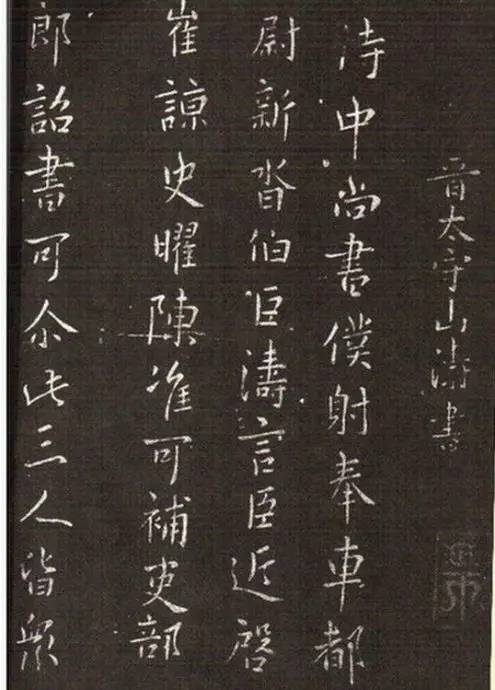 晋太守山濤書
侍中尚書僕射奉車都
尉新沓伯臣濤言臣近啓
崔諒史曜陳准可補吏部
郎詔書可尒此三人皆衆